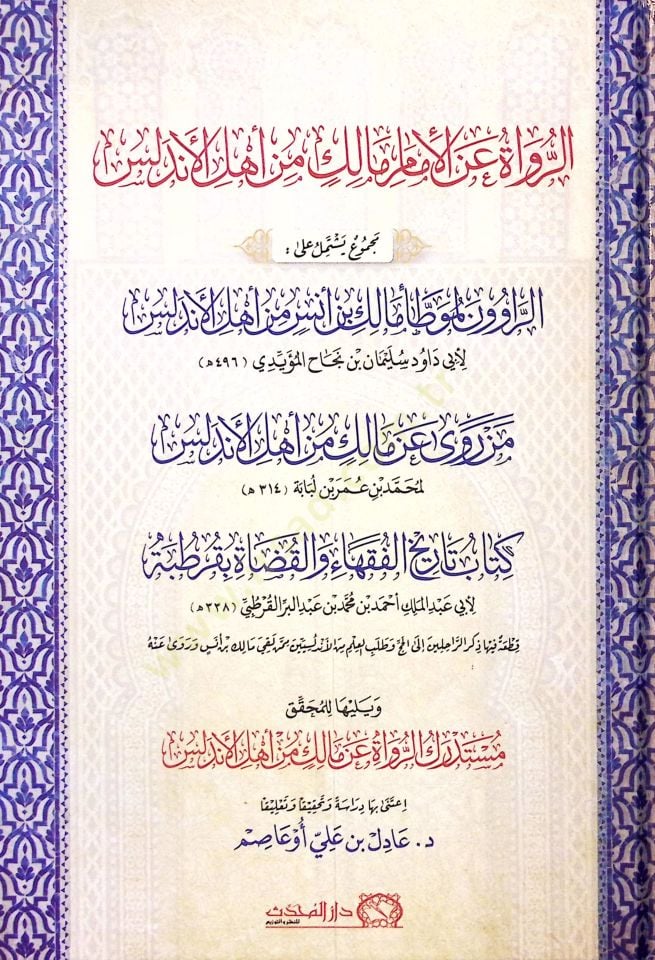 الرُّوَاةُ عَنِ الْإِمَامِ مَالِكٍ مِنْ أَهْلِ الْأَنْدَلُسِ
مَجْمُوعٌ يَشْتَمِلُ عَلَى :
الرَّاوُونَ لِمُوَطَّأ مَالِكِ بْنِ أَنَسٍ مِنْ أَهْلِ الْأَنْدَلُسِ
لِأَبِي دَاوُد سُلَيْمَان بْن نَجَاح المُؤَيَّدِي (٤٩٦هـ)
مَنْ رَوَى عَنْ مَالِكٍ مِنْ أَهْلِ الْأَنْدَلُسِ
لمُحَمَّد بْنِ عُمَرَ بْنِ لُبَابَة (٣١٤ هـ)
كِتَابُ تَارِيخِ الْفُقَهَاءِ وَالْقُضَاةِ بِقُرْطُبَةَ
لِأَبِي عَبْدِ المَلِكِ أَحْمَد بْن مُحَمَّد بْن عَبْدِ البَرِّ القُرْطُبِيِّ (٣٣٨هـ)
قِطْعَةٌ فِيهَا ذِكْرُ الرَّاحِلِينَ إِلَى الحَجِّ وَطَلَبِ العِلْمِ مِنَ الأَنْدَلُسِيِّينَ مِمَّنْ لَقِيَ مَالِكَ بْنَ أَنَسٍ وَرَوَى عَنْهُ
وَيَلِيهَا لِلْمُحَقِّقِ
مُسْتَدْرَكُ الرُّوَاةِ عَنْ مَالِكٍ مِنْ أَهْلِ الْأَنْدَلُسِ
اِعْتَنَى بِهَا دِرَاسَةً وَتَحْقِيقًا وَتَعْلِيقًا
د. عَادِل بْن عَلِيّ أُوعَاصِم
دار المحدث
للنشر والتوزيع